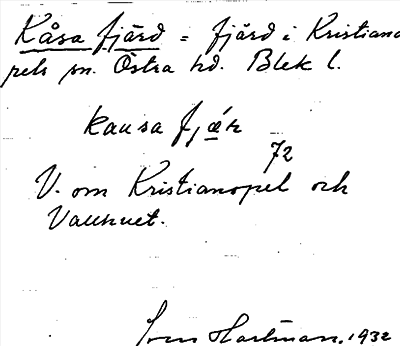 Kåsa fjärd = fjärd i Kristiano
pels sn. Östra hd. Blek l.
kausa fjæ̣r
72
V. om Kristianopel och
Vallhuet.
Hartman, 1932